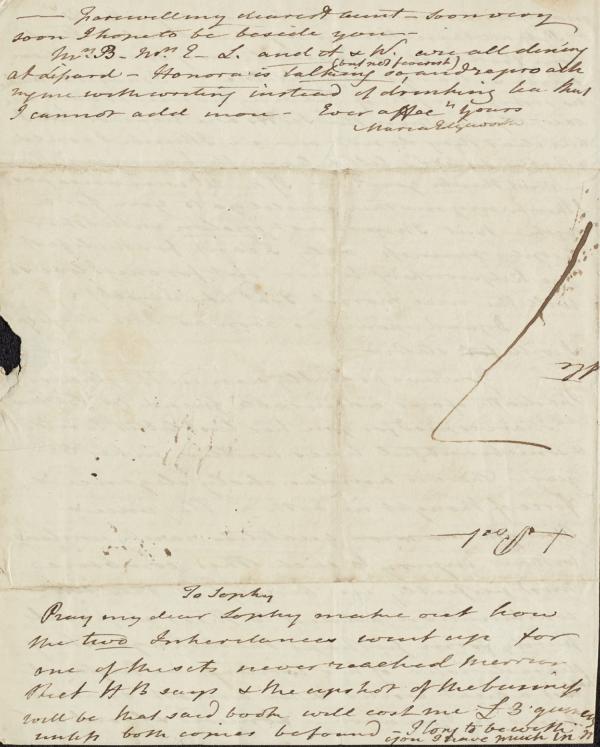 — Farewell my dearest aunt - soon very
soon I hope to be beside you —
Mrs B - Mrs E - L. and &  W. are all dining
(but not fearest)
at - Honora is talking so, and reproach
ing me with writing instead of drinking tea that
I cannot add more - Ever affecly yours
Maria Edgeworth
To Sophy
Pray my dear Sophy make out how
the two Inheritances went up for
one of the sets never reached Merrion
Street HB says & the upshot of the business
will be that said book will cost me £3.
unless both copies be found - I long to be with
you I have much in